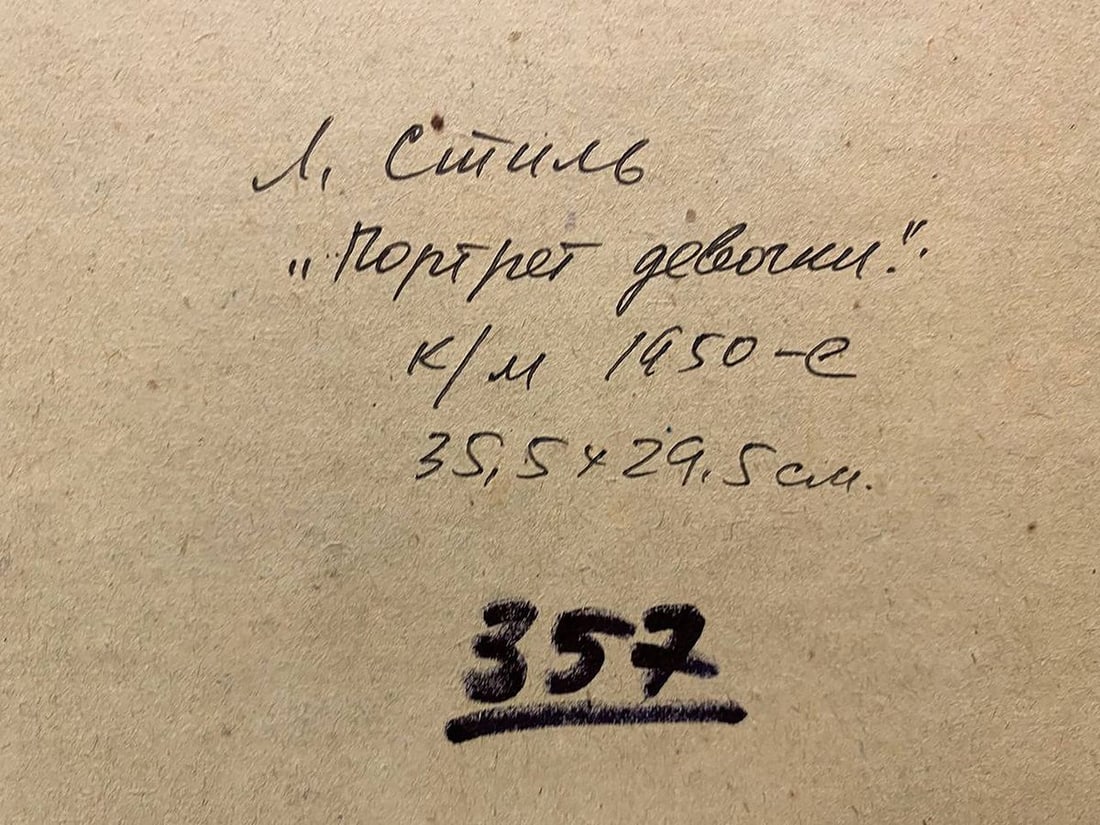 Л. Стиль
„Портрет девочки."
к/м 1950-е
35,5 х 29,5 см.
357